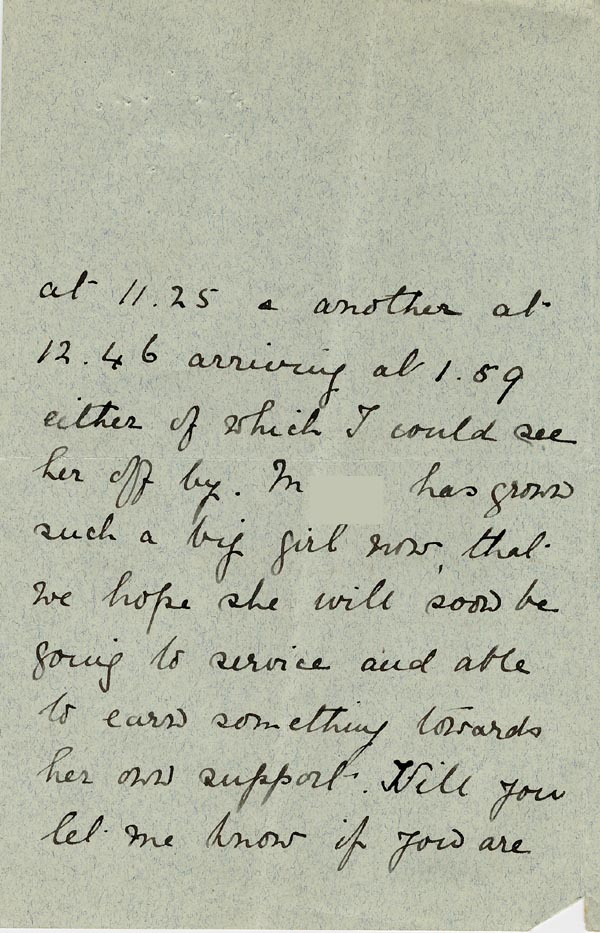 at 11.25 & another at
12.46 arriving at 1.59
either of which I could see
her off by. M has grown
such a big girl now, that
we hope she will soon be
going to service and able
to earn something towards
her own support. Will you
let me know if you are